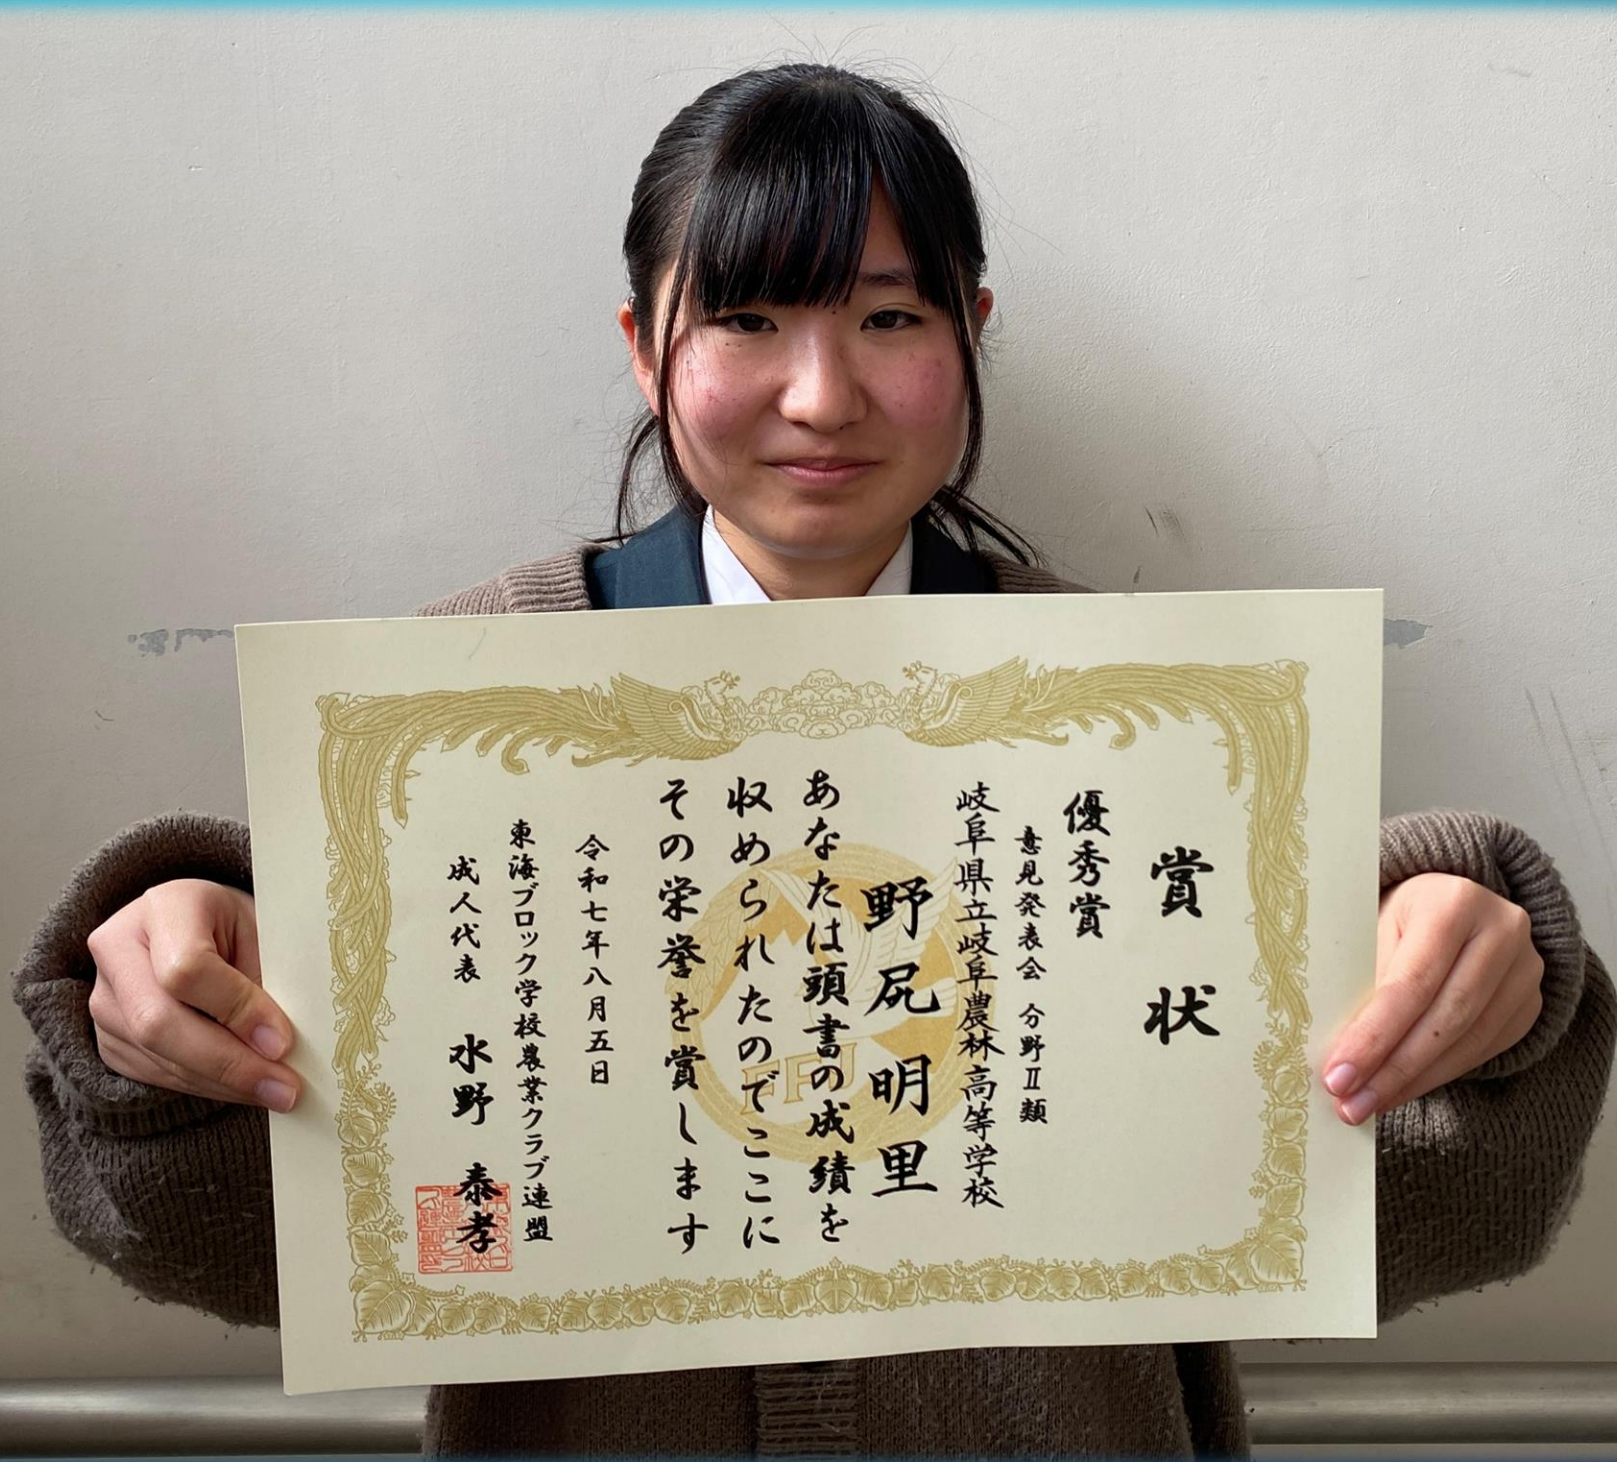 賞状
優秀賞
意見発表会 分野Ⅱ類
岐阜県立岐阜農林高等学校
野尻明里
あなたは頭書の成績を
収められたのでここに
その栄誉を賞します
令和七年八月五日
東海ブロック学校農業クラブ連盟
成人代表 水野 泰孝
FFJ